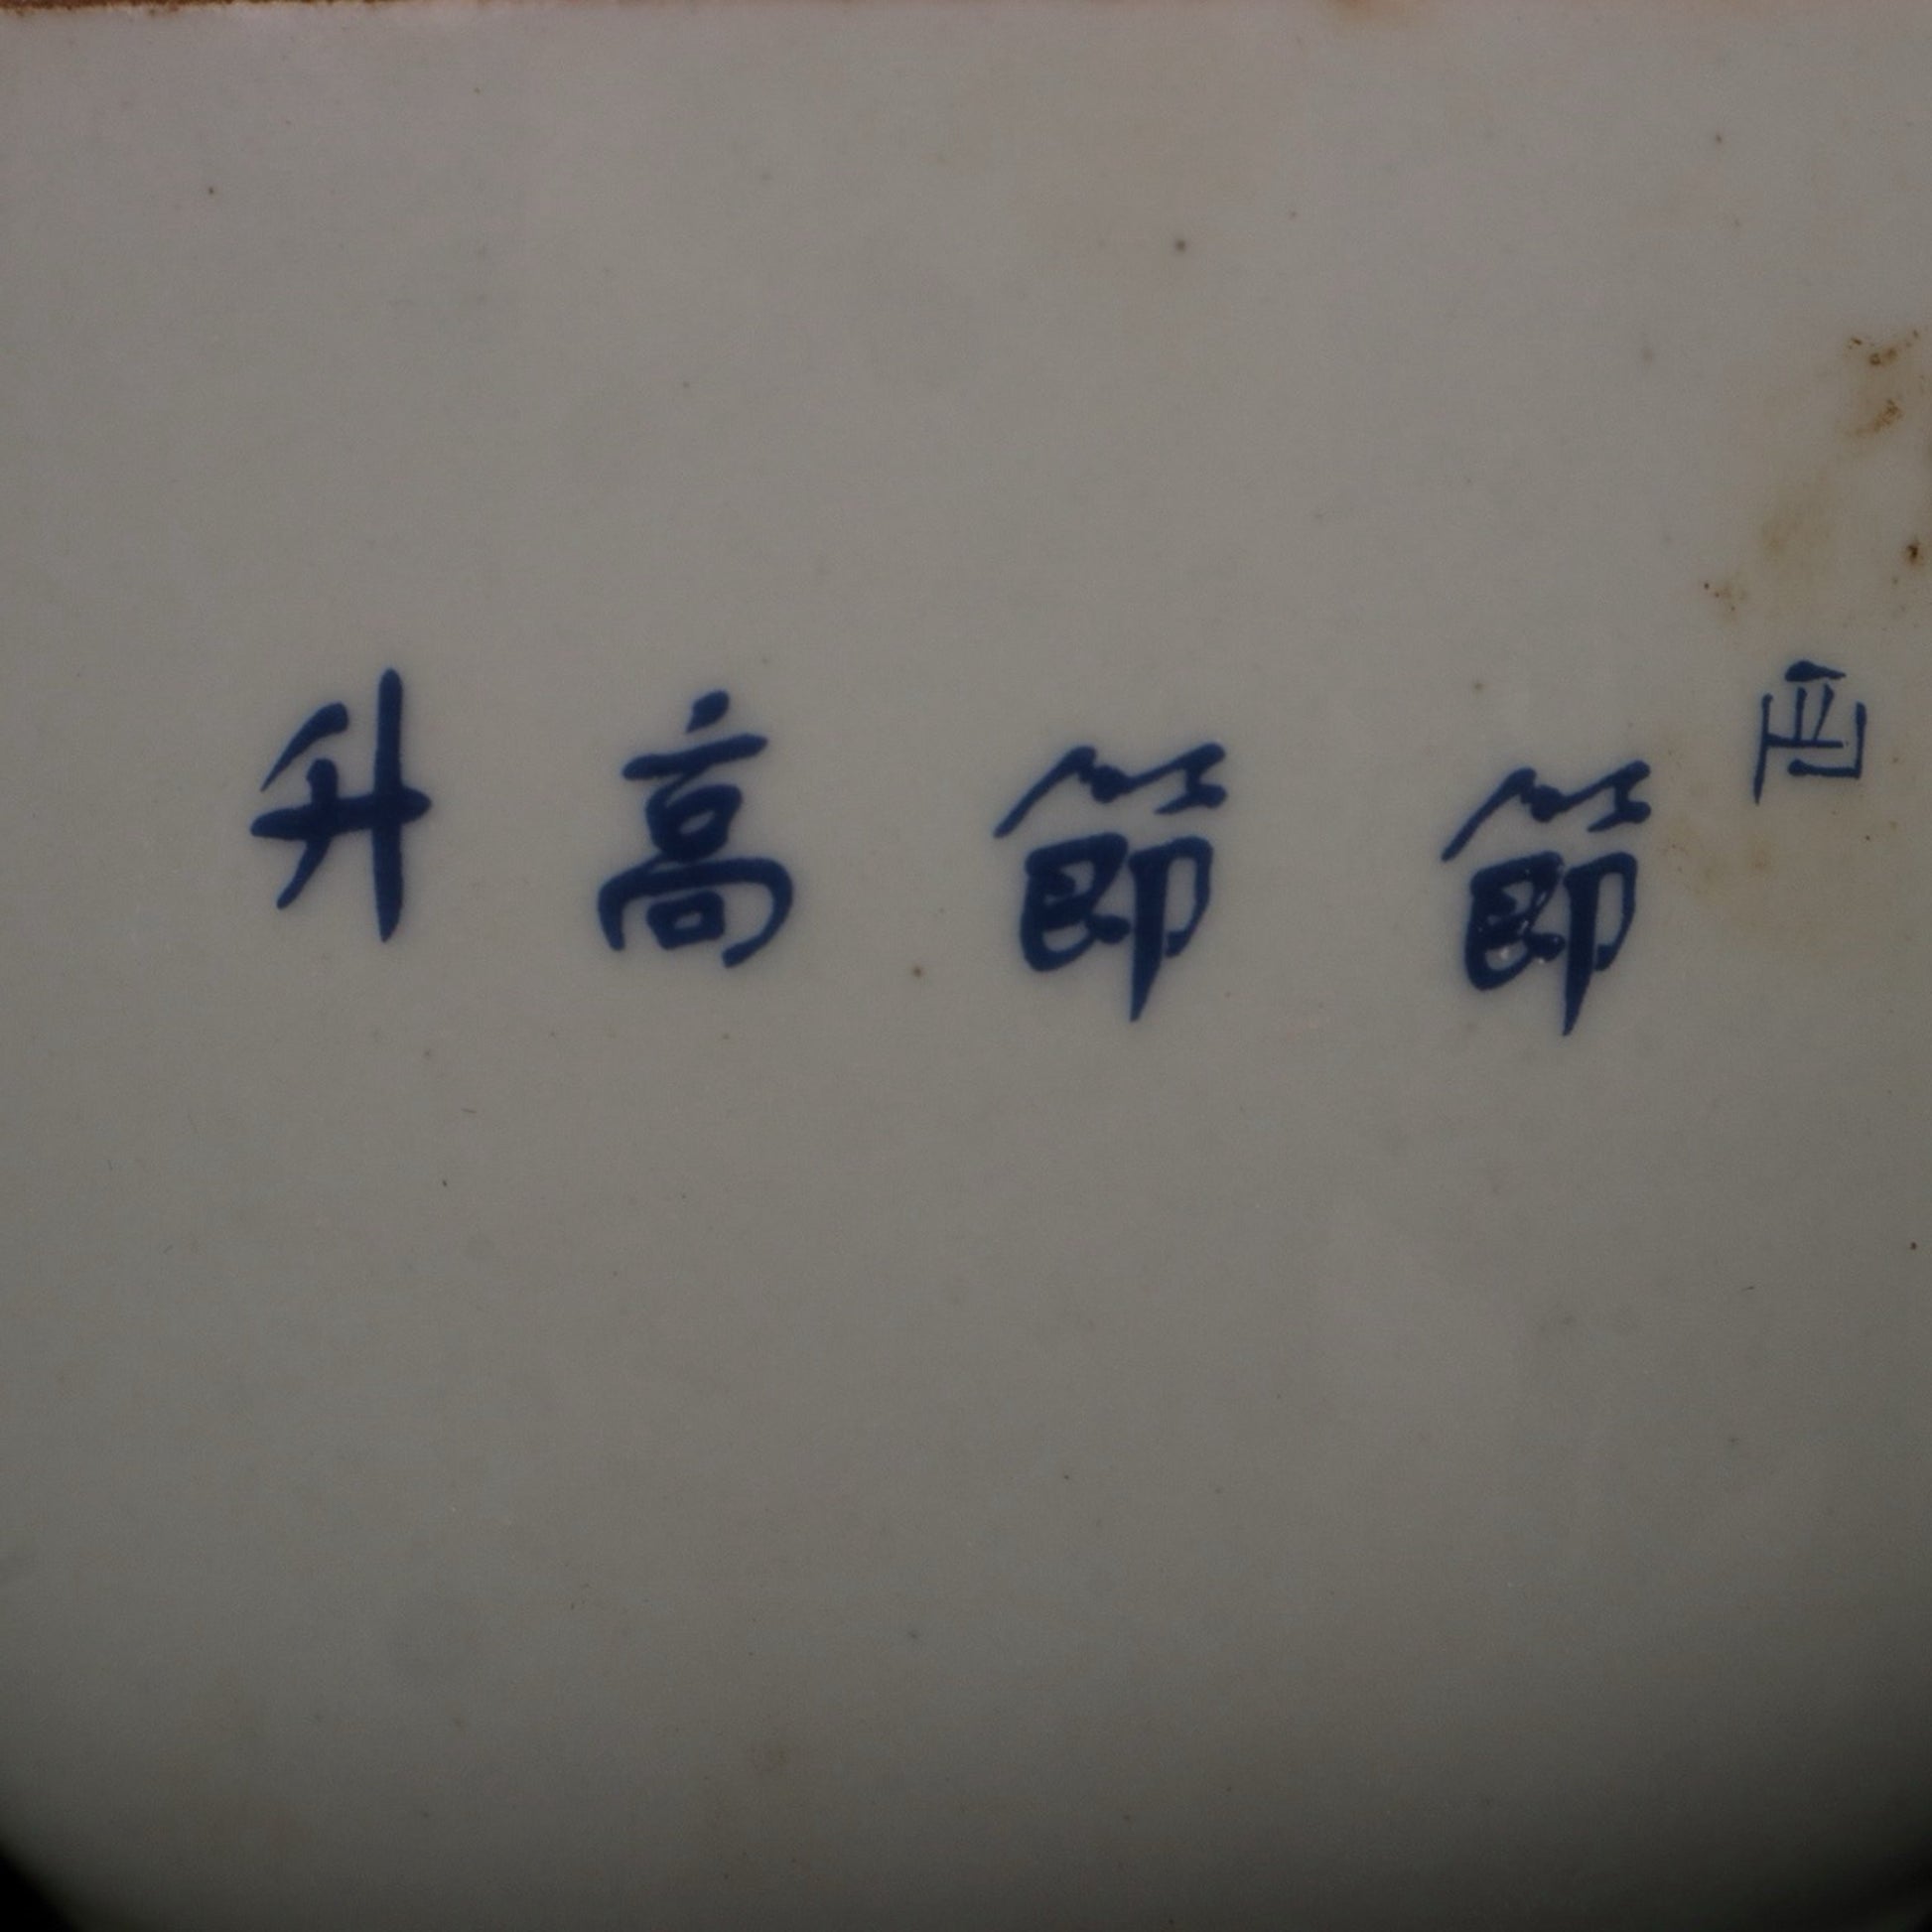 節節高升